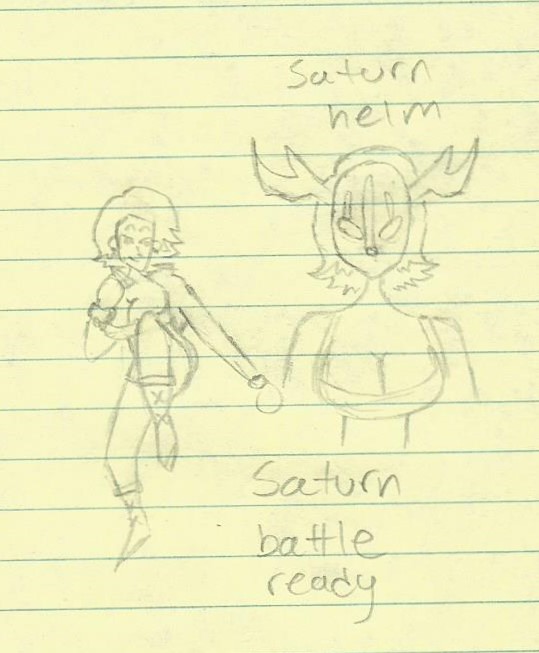 Saturn
helm
Saturn
battle
ready